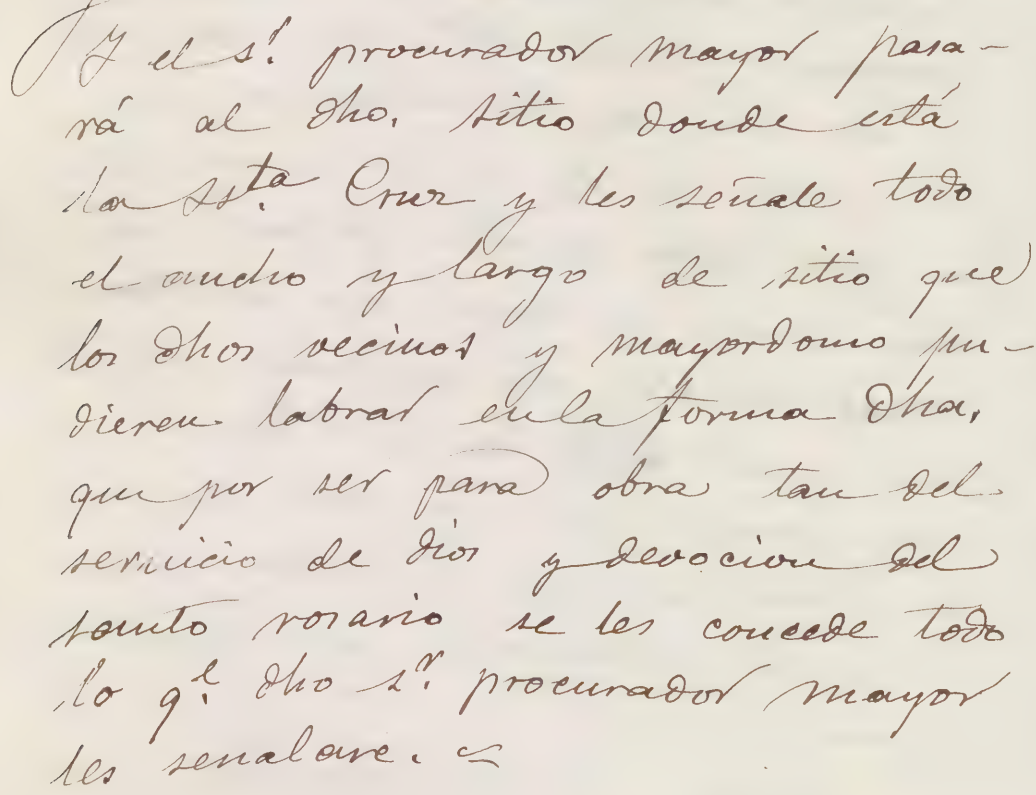 Y el s.r procurador mayor pasa-
rá al dho. sitio donde está
la Ss.ta Cruz y les señale todo
el ancho y largo de sitio que
los dhos vecinos y mayordomo pu-
dieren labrar en la forma dha,
que por ser para obra tan del
servicio de dios y devocion del
santo rosario se les concede todo
lo q.e dho s.r procurador mayor
les senalare.